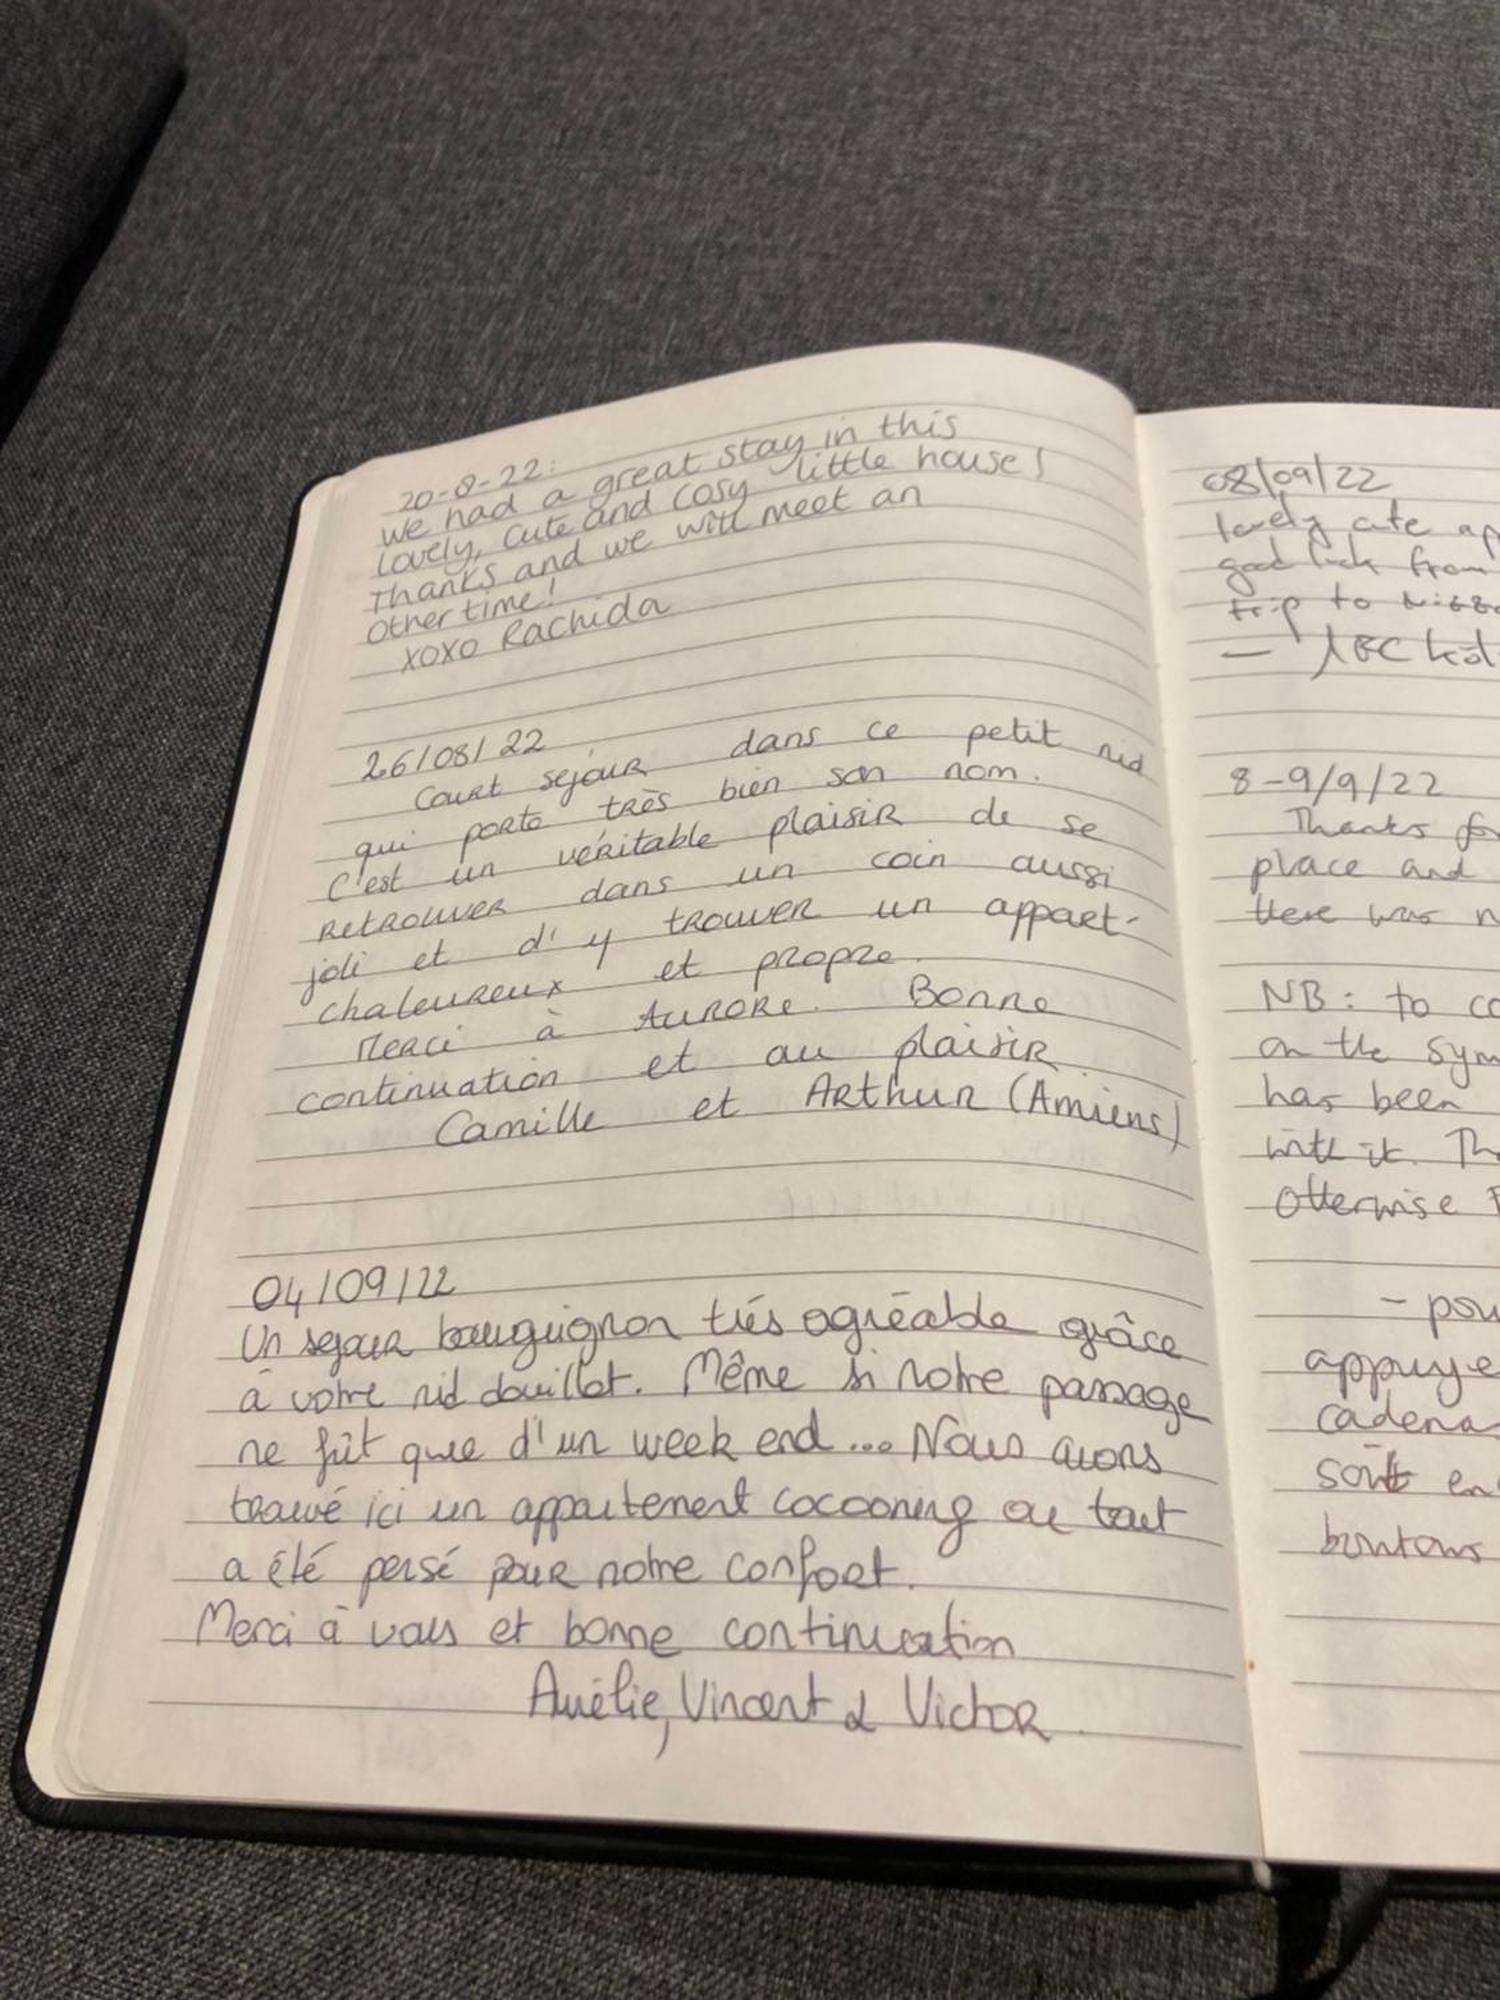 20-8-22:
we had a great stay in this
lovely, cute and cosy little house!
Thanks and we will meet an
other time!
xoxo Rachida
26/08/22
Court sejour dans ce petit nid
qui porte très bien son nom.
C'est un véritable plaisir de se
retrouver dans un coin aussi
joli et d'y trouver un appart-
chaleureux et propre.
Merci à Aurore. Bonne
continuation et au plaisir
Camille et Arthur (Amiens)
04/09/22
Un sejour bourguignon très agréable grâce
à votre nid douillet. Même si notre passage
ne fût que d'un week end... Nous avons
trouvé ici un appartement cocooning ou tout
a été pensé pour notre confort.
Merci à vous et bonne continuation
Aurélie, Vincent & Victor
08/09/22
lovely cute
good luck from
trip to
8-9/9/22
Thanks
place and
there was
NB: to
on the
has been
with it.
Otherwise
-
appuye
cadena
sont
boutons